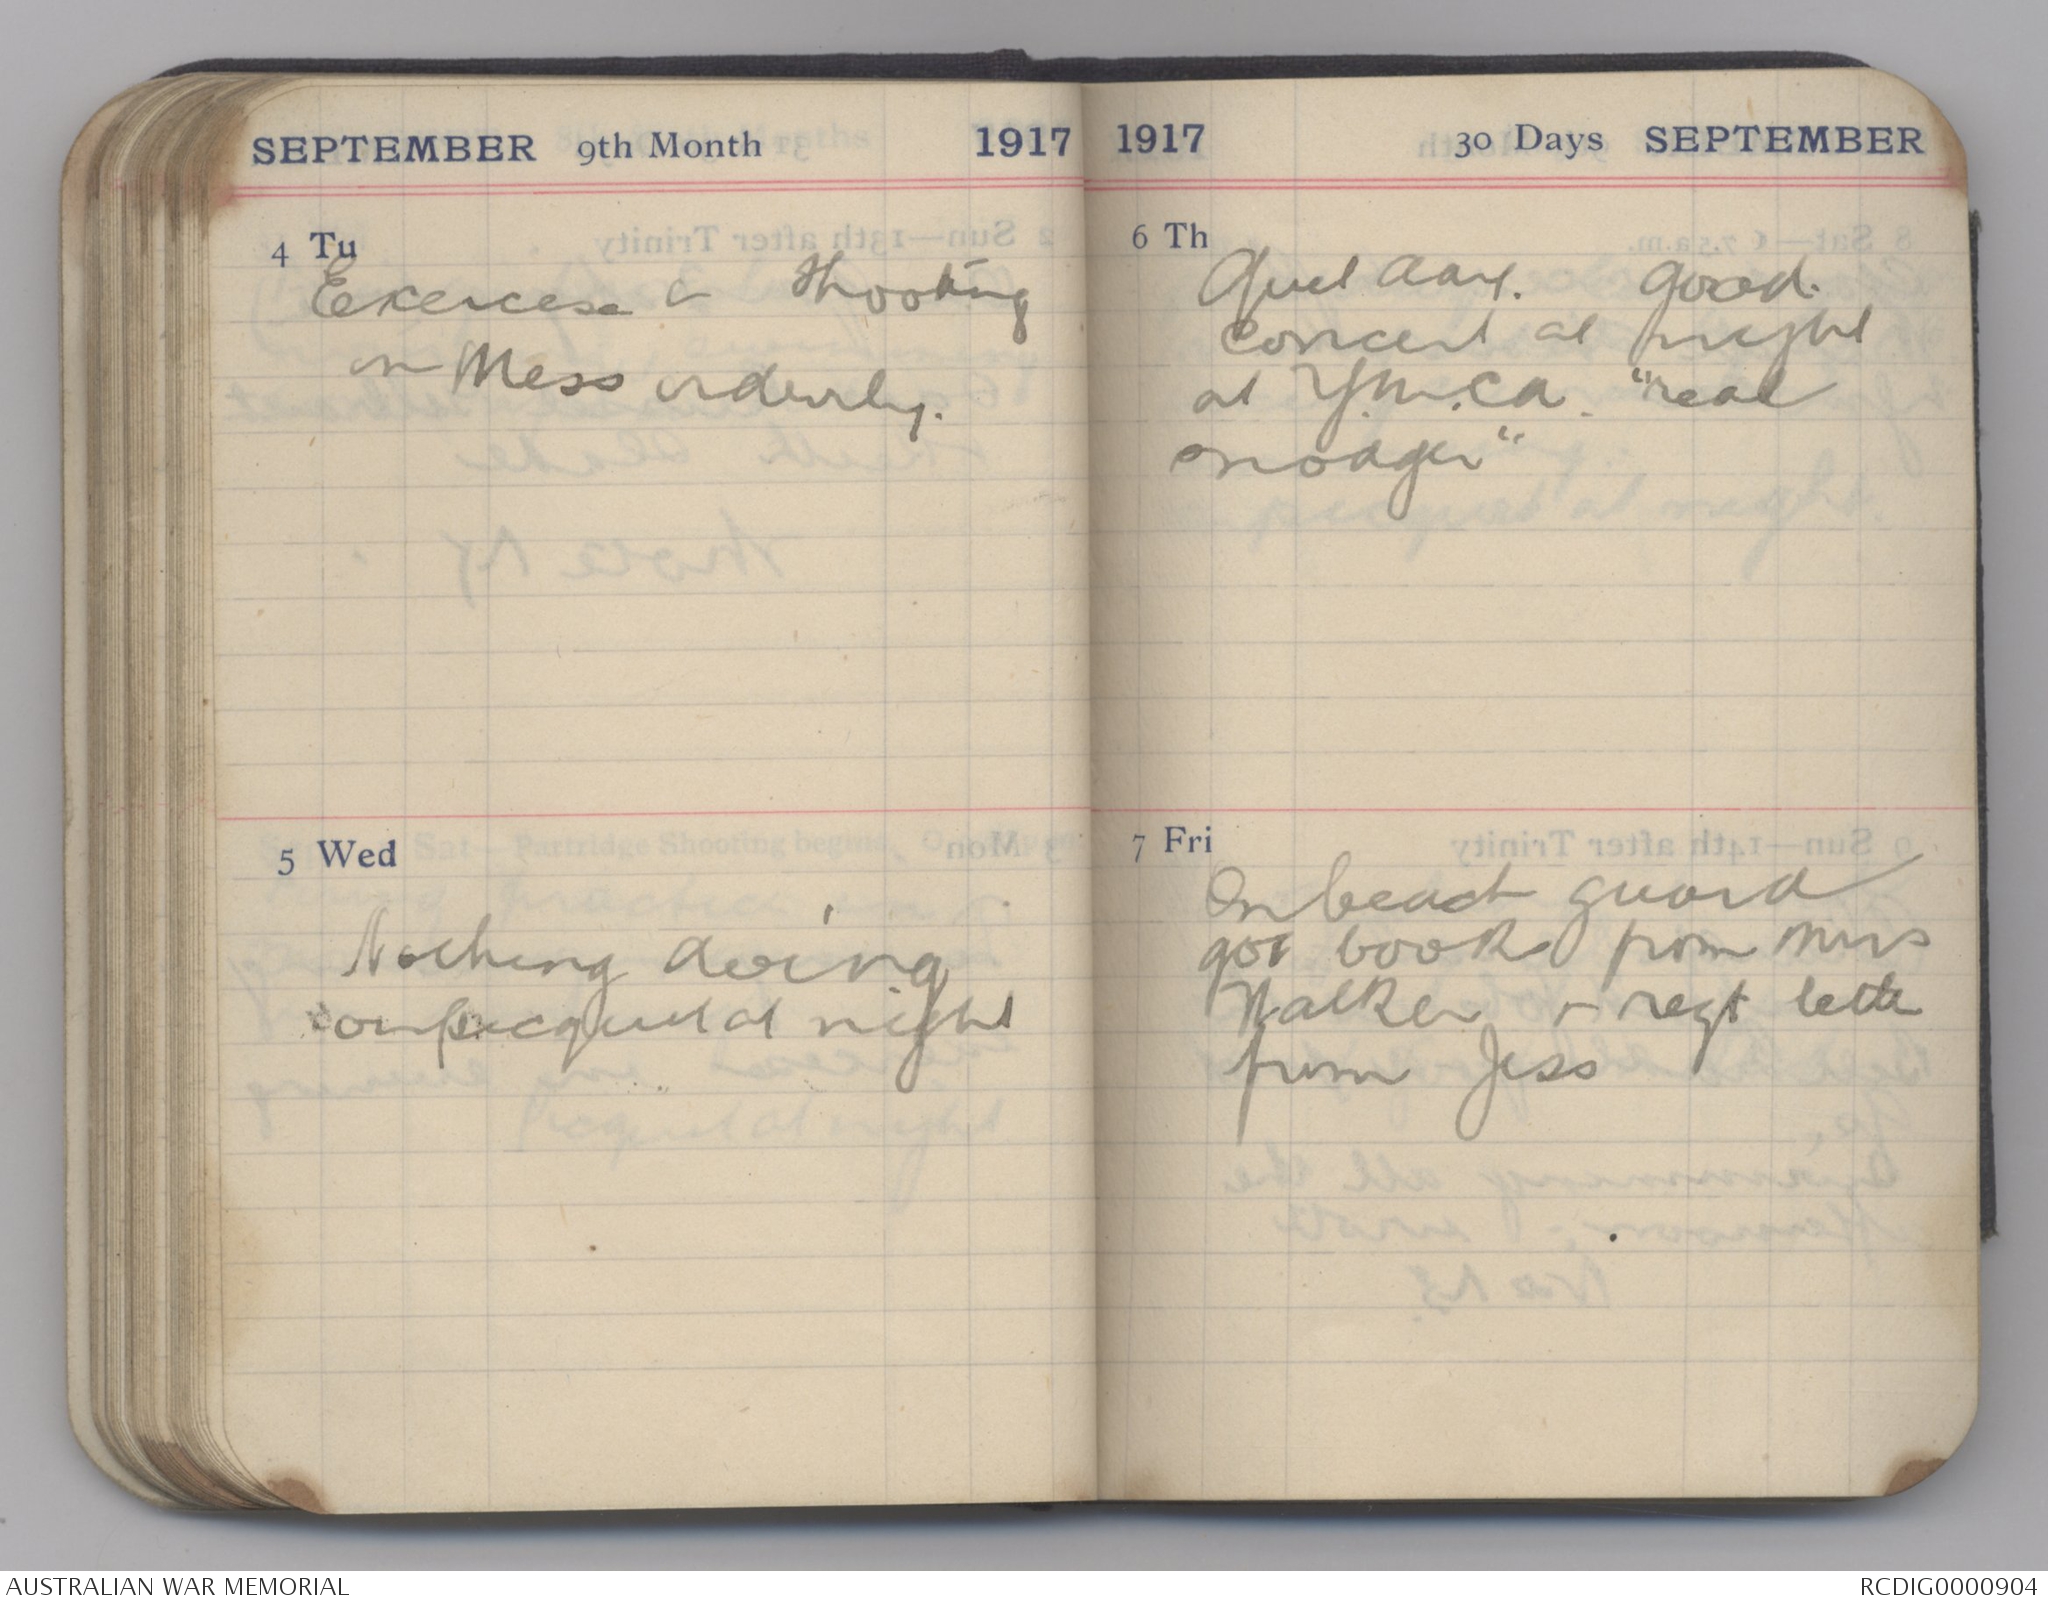 SEPTEMBER 9th Month 1917
4 Tu
Exercise & Shooting
on Mess orderly.
5 Wed
Nothing doing
on picquet at night
1917 30 Days SEPTEMBER
6 Th
Quiet day. Good
concert at night
at Y.M.C.A. "real
snodger"
7 Fri
On beach guard
got books from Mrs
Walker & regt letter
from Jess
AUSTRALIAN WAR MEMORIAL
RCDIG0000904